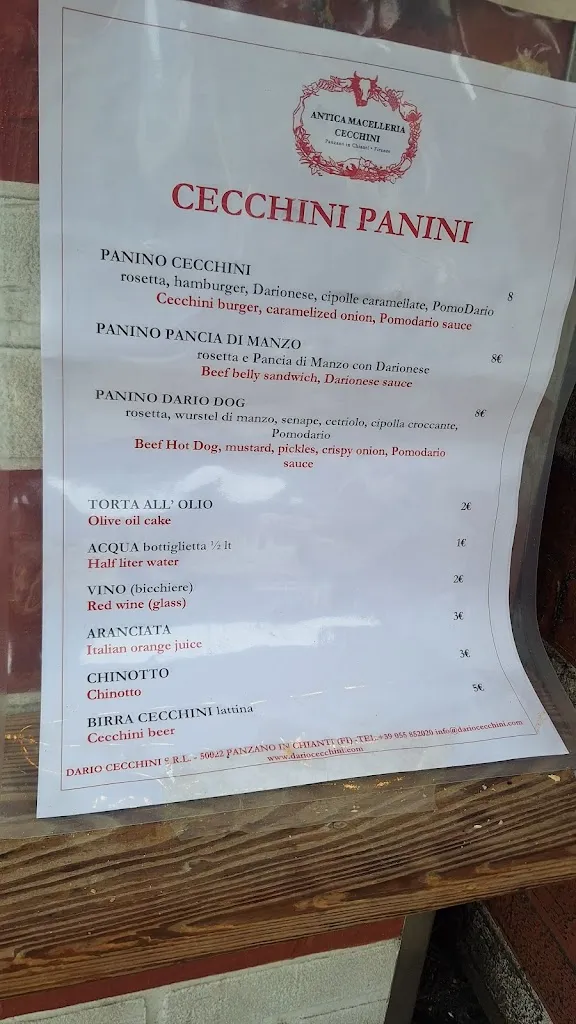 ANTICA MACELLERIA
CECCHINI
Panzano in Chianti • Firenze
CECCHINI PANINI
PANINO CECCHINI 8
rosetta, hamburger, Darionese, cipolle caramellate, PomoDario
Cecchini burger, caramelized onion, Pomodario sauce
PANINO PANCIA DI MANZO 8€
rosetta e Pancia di Manzo con Darionese
Beef belly sandwich, Darionese sauce
PANINO DARIO DOG 8€
rosetta, wurstel di manzo, senape, cetriolo, cipolla croccante,
Pomodario
Beef Hot Dog, mustard, pickles, crispy onion, Pomodario
sauce
TORTA ALL' OLIO 2€
Olive oil cake
ACQUA bottiglietta ½ lt 1€
Half liter water
VINO (bicchiere) 2€
Red wine (glass)
ARANCIATA 3€
Italian orange juice
CHINOTTO 3€
Chinotto
BIRRA CECCHINI lattina 5€
Cecchini beer
DARIO CECCHINI S.R.L. - 50022 PANZANO IN CHIANTI (FI) -TEL +39 055 852020 info@dariocecchini.com
www.dariocecchini.com